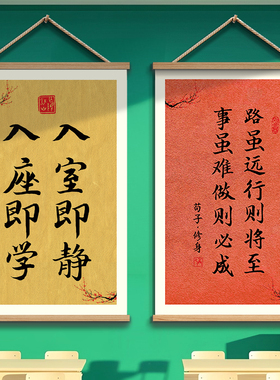 入室即静
入座即学
路虽远行则将至
事虽难做则必成
荀子·修身